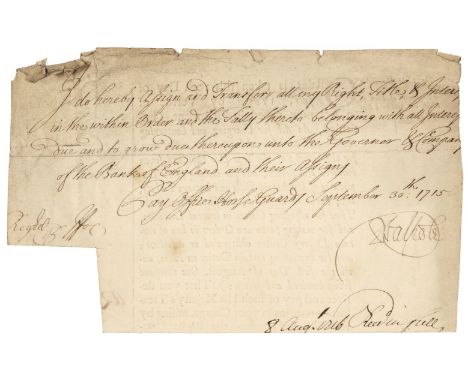 I do hereby Assign and Transferr all my Right, Title, & Interes
in the within Order and the Tally thereto belonging with all Interes
due and to grow due thereupon unto the Governor & Compan
of the Bank of England and their Assigns
Pay Office Horse Guards September 30th. 1715
RWalpole
8 Augt. 1716 Recd in full